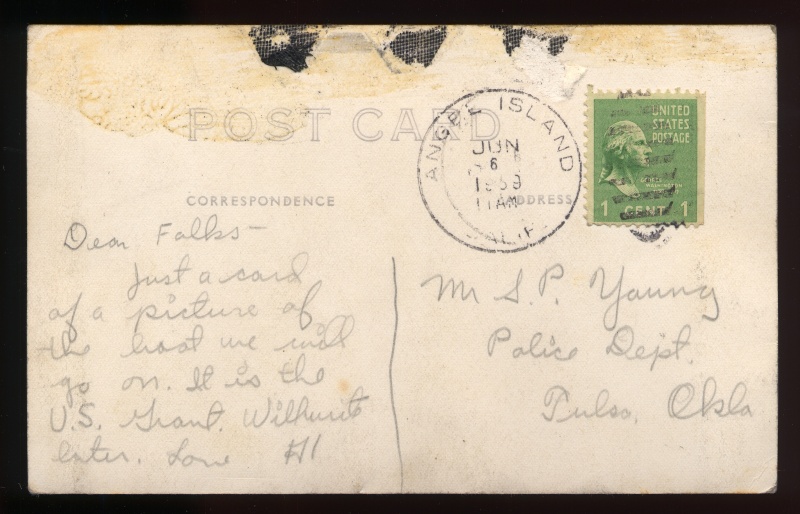 POST CARD
ANGEL ISLAND
JUN
6
1939
11 AM
CALIF.
UNITED
STATES
POSTAGE
GEORGE
WASHINGTON
1 CENT 1
CORRESPONDENCE
ADDRESS
Dear Folks—
Just a card
of a picture of
the boat we will
go on. It is the
U.S. Grant. Will write
later. Love Al
Mr S.P. Young
Police Dept.
Tulsa, Okla